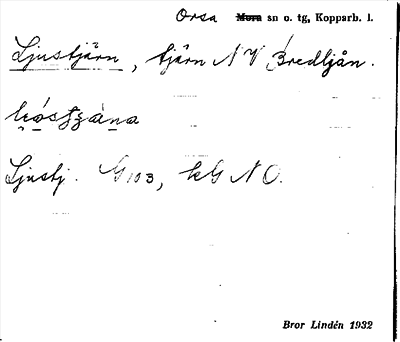 Orsa Mora sn o. tg, Kopparb. l.
Ljustjärn, tjärn NV Bredljån.
Ljustj. G103, kG NO.
Bror Lindén 1932